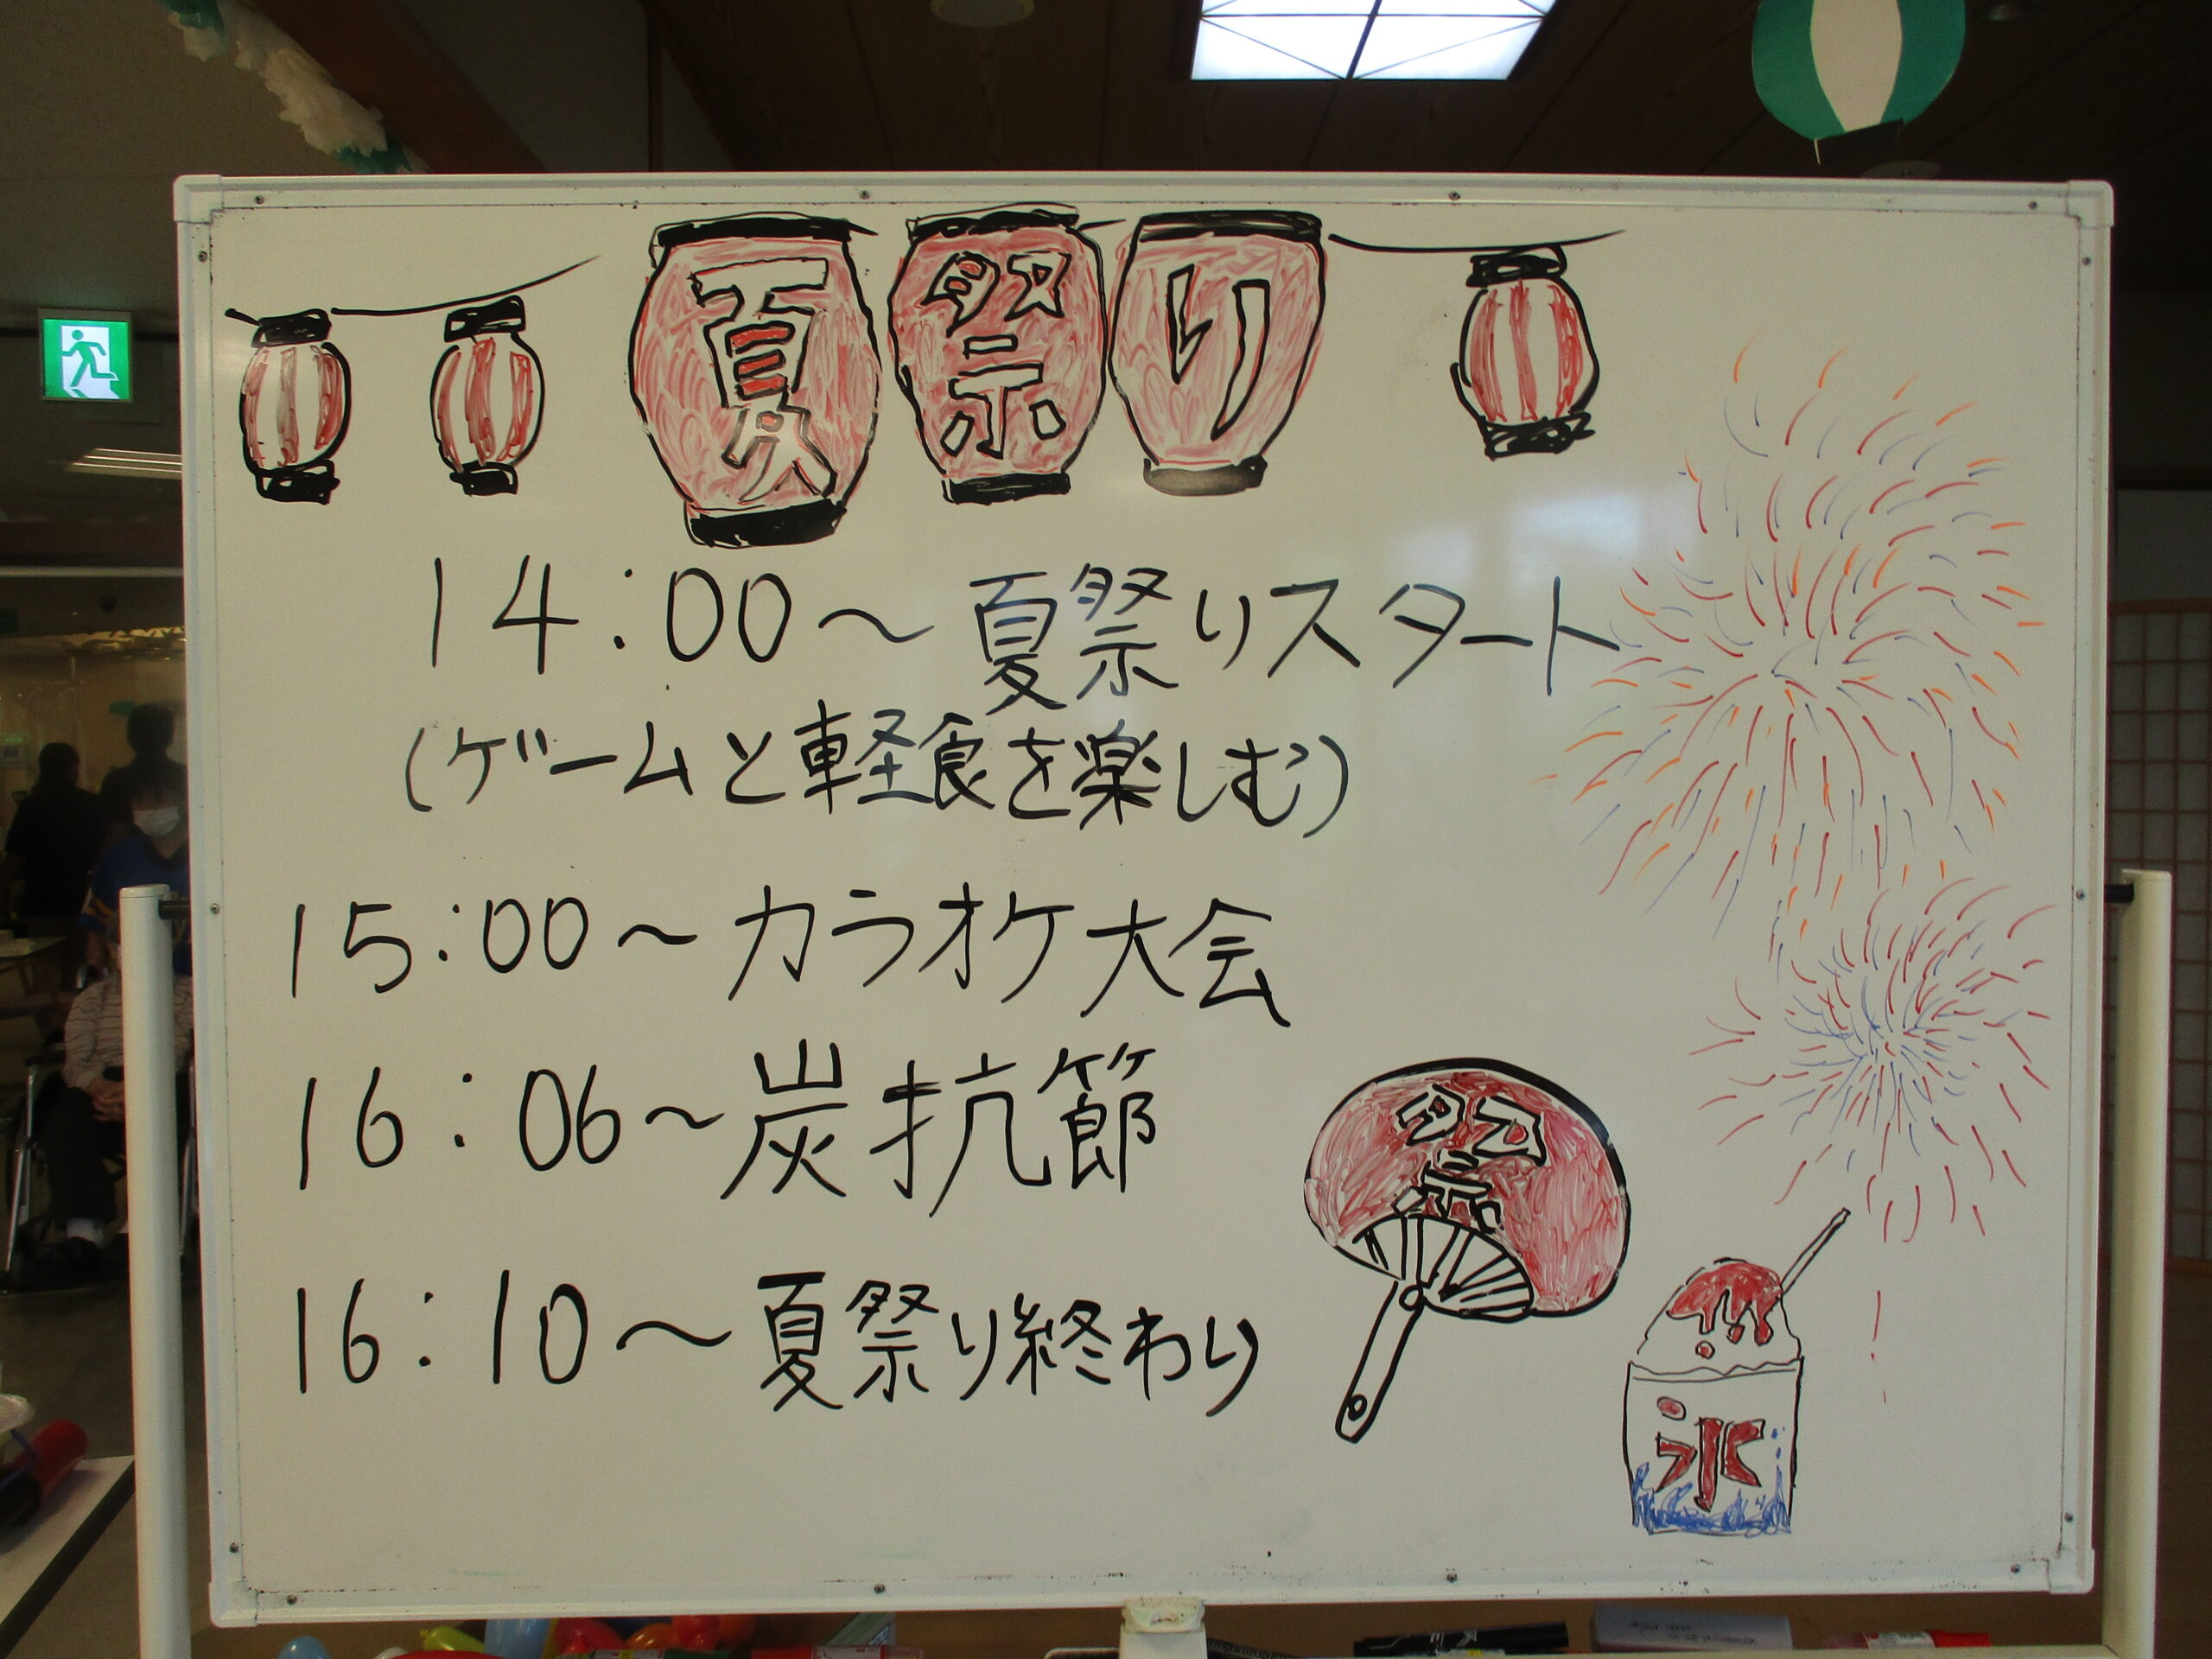 夏祭り
14:00～夏祭りスタート
(ゲームと軽食を楽しむ)
15:00～カラオケ大会
16:06～炭抗節
16:10～夏祭り終わり
祭
氷